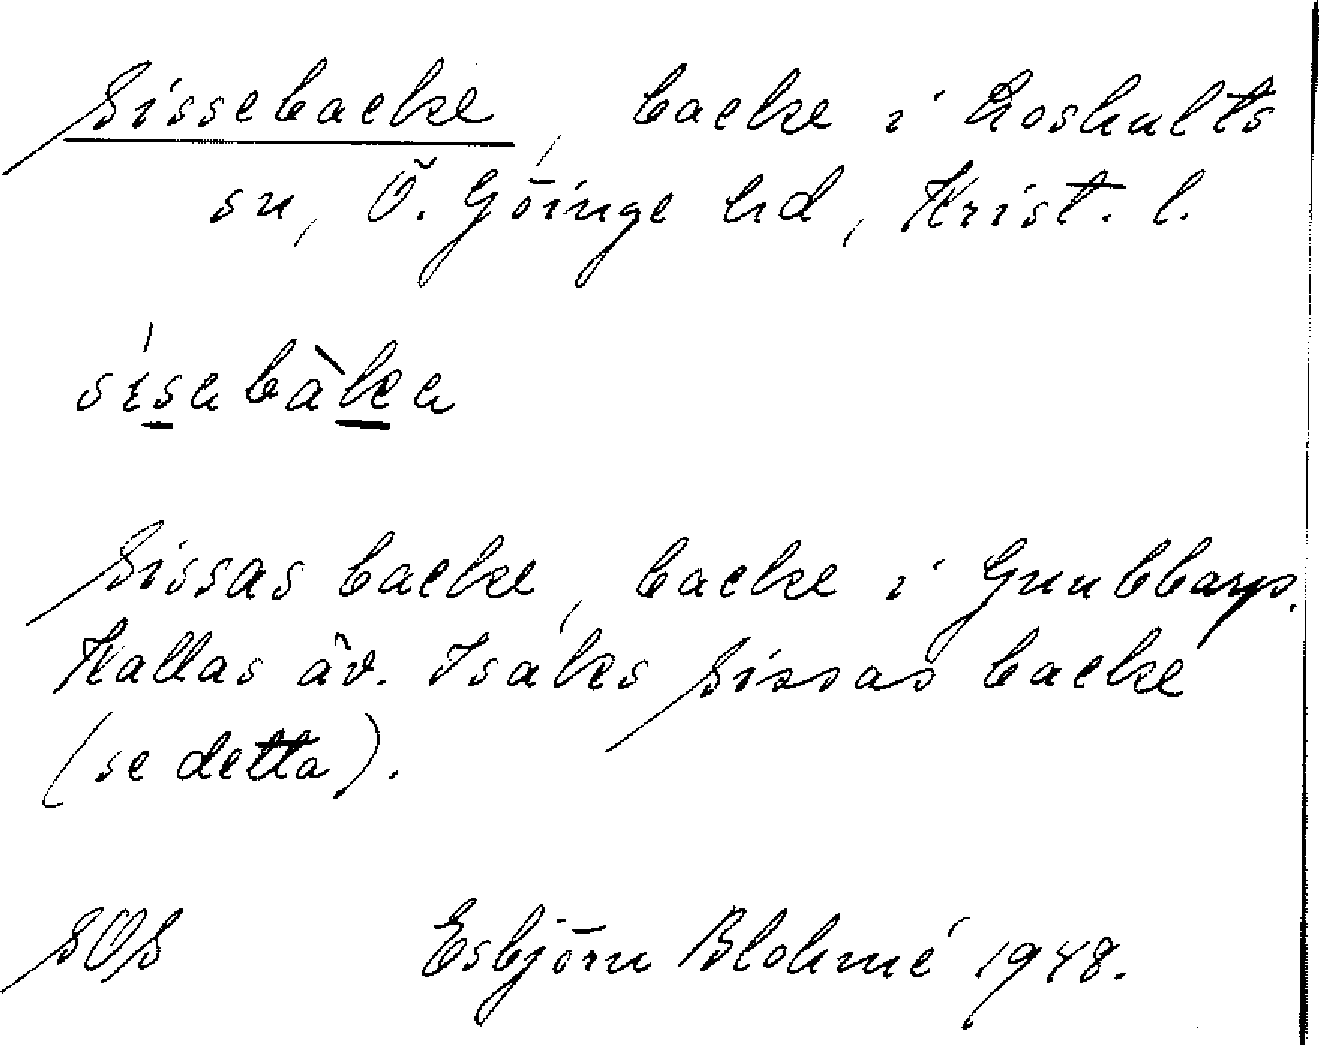 Sissebacke, backe i Loshults
sn, Ö. Göinge hd, Krist. l.
sísabàka
Sissas backe, backe i Grubbarp.
Kallas äv. Isaks Sissas backe
(se detta).
SOS Esbjörn Blohmé 1948.